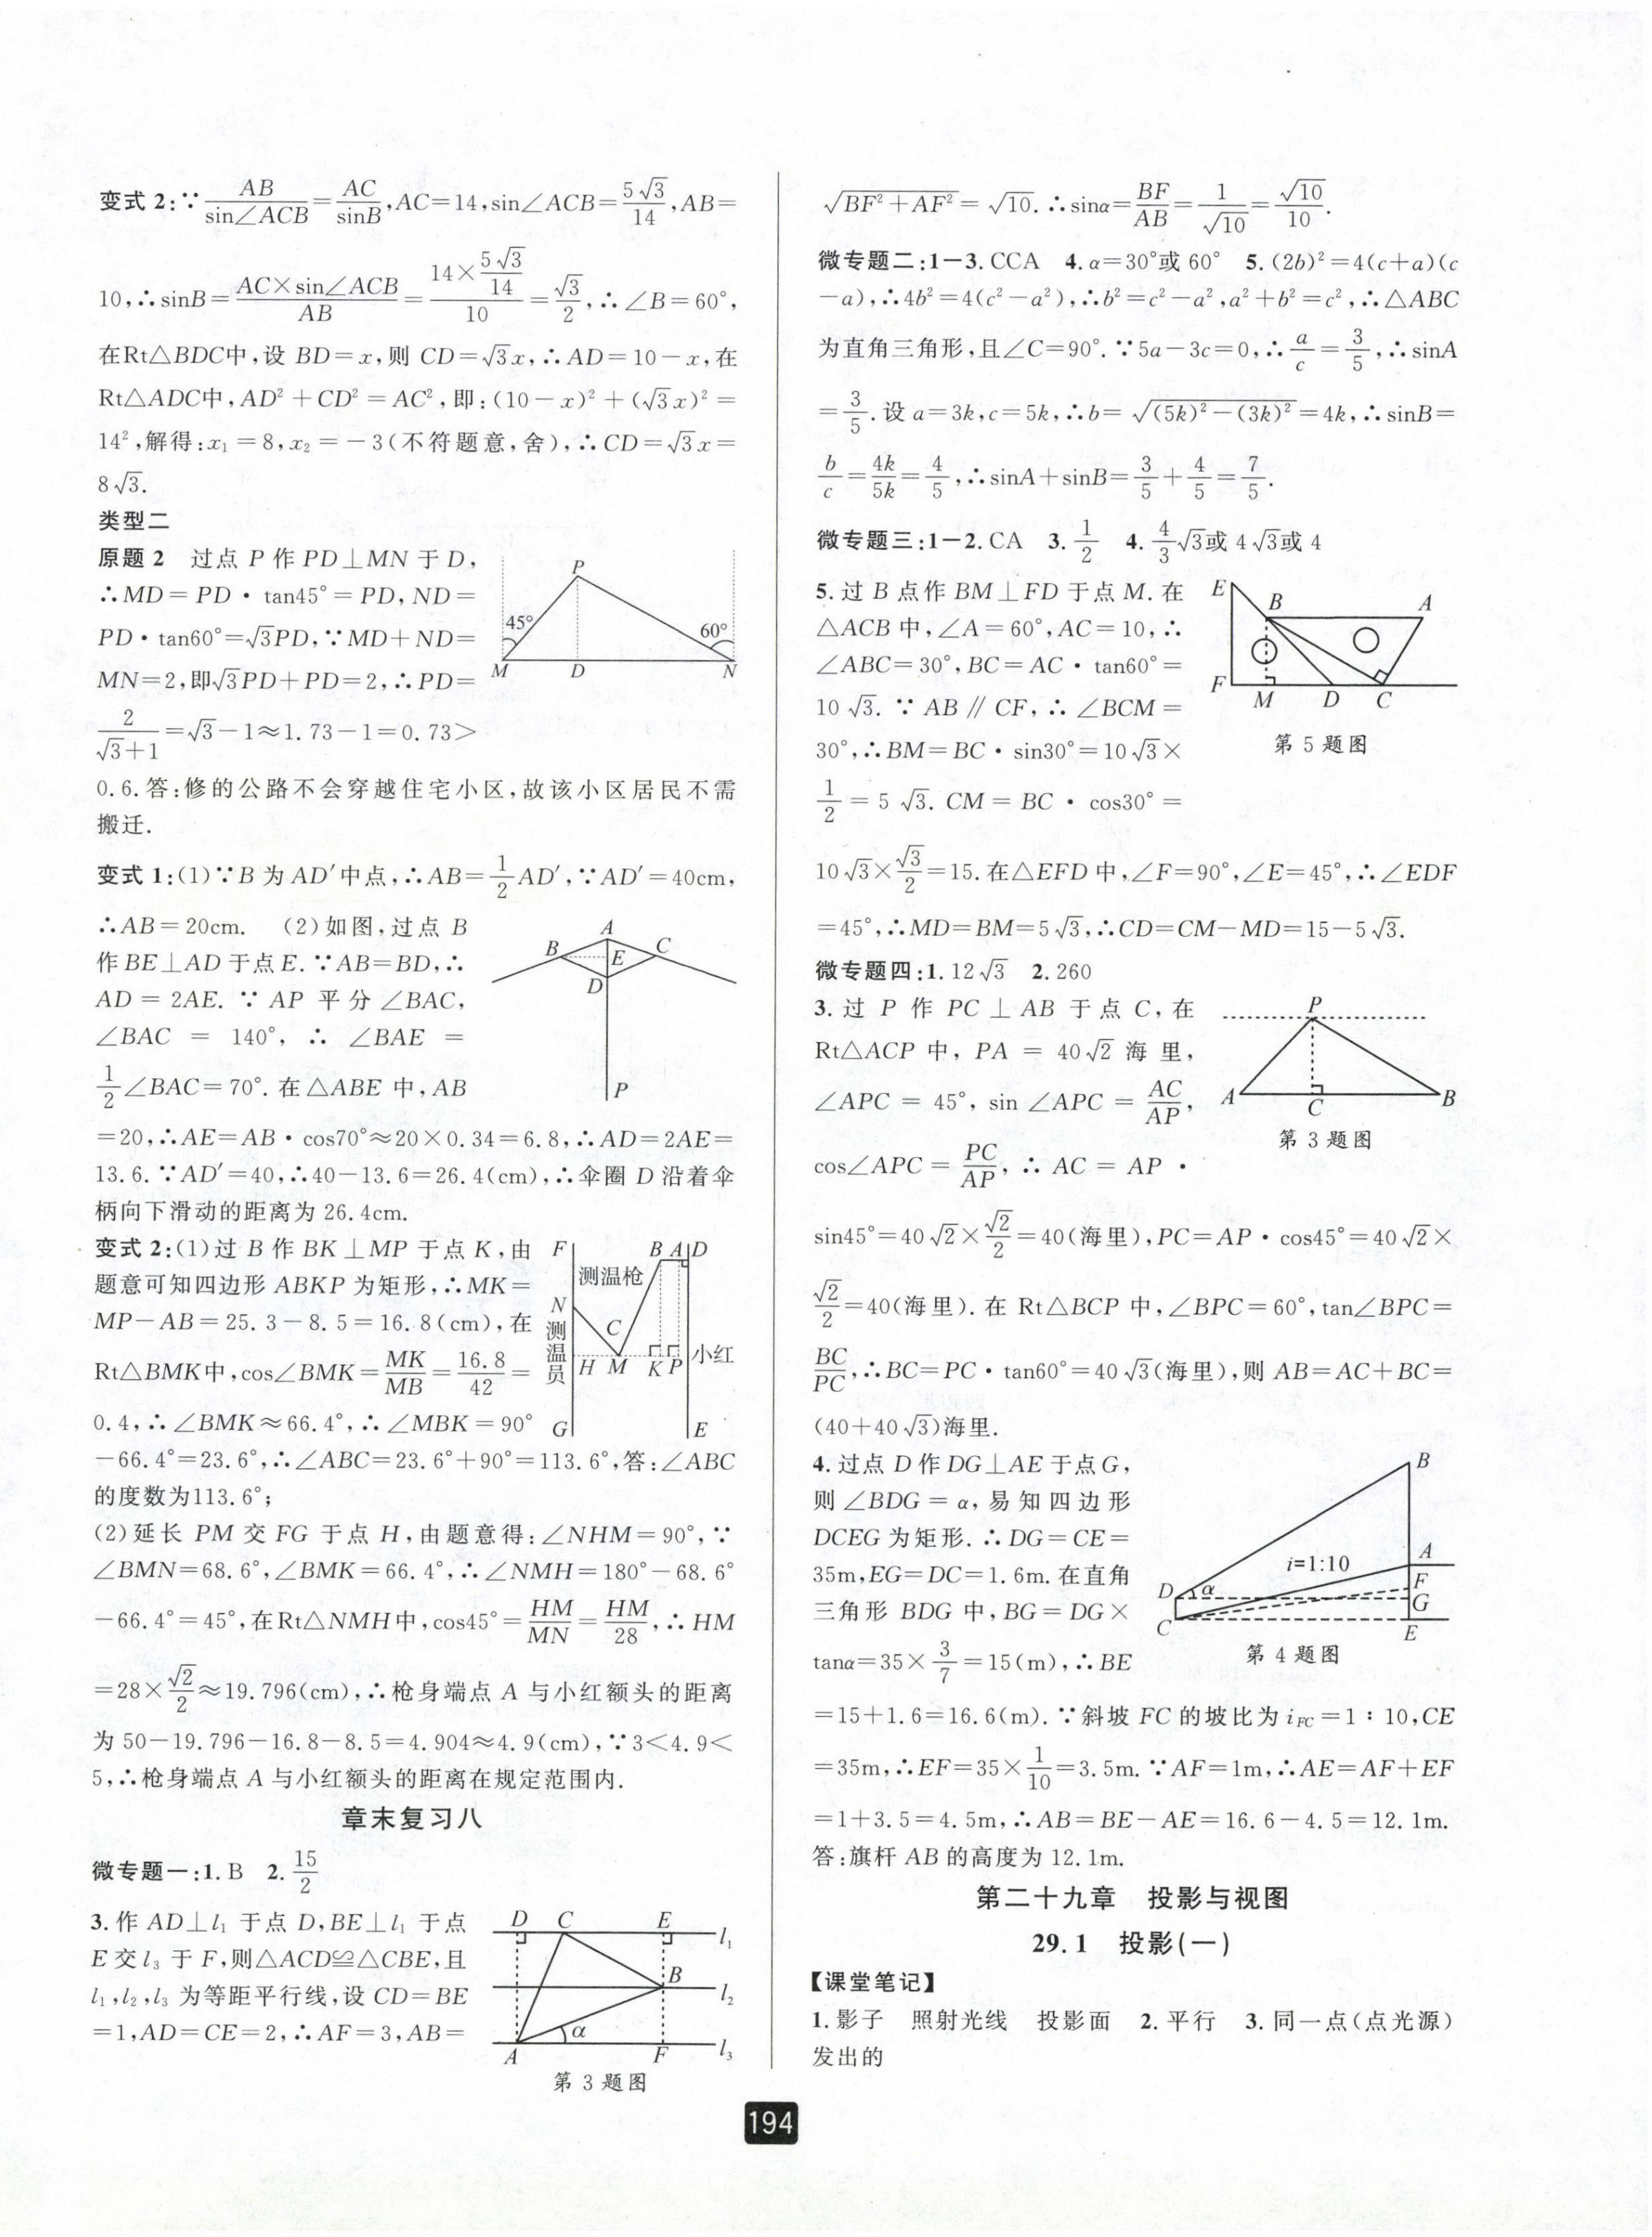 变式 2:∵AB/sin∠ACB=AC/sinB,AC=14,sin∠ACB=5√3/14,AB=
10,∴sinB=AC×sin∠ACB/AB=(14×5√3/14)/10=√3/2,∴∠B=60°,
在Rt△BDC中,设 BD=x,则 CD=√3x,∴AD=10-x,在
Rt△ADC中,AD²+CD²=AC²,即:(10-x)²+(√3x)²=
14²,解得:x₁=8,x₂=-3(不符题意,舍),∴CD=√3x=
8√3.
类型二
原题 2 过点 P 作 PD⊥MN 于 D,
∴MD=PD·tan45°=PD,ND=
PD·tan60°=√3PD,∵MD+ND=
MN=2,即√3PD+PD=2,∴PD=
2/(√3+1)=√3-1≈1.73-1=0.73>
P
45°
60°
M D N
0.6.答:修的公路不会穿越住宅小区,故该小区居民不需
搬迁.
变式 1:(1)∵B 为 AD′中点,∴AB=1/2AD′,∵AD′=40cm,
∴AB=20cm. (2)如图,过点 B
作 BE⊥AD 于点 E.∵AB=BD,∴
AD=2AE.∵AP 平分∠BAC,
∠BAC=140°,∴∠BAE=
1/2∠BAC=70°.在△ABE 中,AB
A
B E C
D
P
=20,∴AE=AB·cos70°≈20×0.34=6.8,∴AD=2AE=
13.6.∵AD′=40,∴40-13.6=26.4(cm),∴伞圈 D 沿着伞
柄向下滑动的距离为 26.4cm.
变式 2:(1)过 B 作 BK⊥MP 于点 K,由
题意可知四边形 ABKP 为矩形,∴MK=
MP-AB=25.3-8.5=16.8(cm),在
Rt△BMK中,cos∠BMK=MK/MB=16.8/42=
0.4,∴∠BMK≈66.4°,∴∠MBK=90°
F B A D
测温枪
N
测温员
C
H M K P 小红
G E
-66.4°=23.6°,∴∠ABC=23.6°+90°=113.6°,答:∠ABC
的度数为113.6°;
(2)延长 PM 交 FG 于点 H,由题意得:∠NHM=90°,∵
∠BMN=68.6°,∠BMK=66.4°,∴∠NMH=180°-68.6°
-66.4°=45°,在Rt△NMH中,cos45°=HM/MN=HM/28,∴HM
=28×√2/2≈19.796(cm),∴枪身端点 A 与小红额头的距离
为 50-19.796-16.8-8.5=4.904≈4.9(cm),∵3<4.9<
5,∴枪身端点 A 与小红额头的距离在规定范围内.
章末复习八
微专题一:1.B 2.15/2
3.作 AD⊥l₁ 于点 D,BE⊥l₁ 于点
E 交 l₃ 于 F,则△ACD≌△CBE,且
l₁,l₂,l₃ 为等距平行线,设 CD=BE
=1,AD=CE=2,∴AF=3,AB=
D C E l₁
B l₂
α
A F l₃
第 3 题图
√(BF²+AF²)=√10.∴sinα=BF/AB=1/√10=√10/10.
微专题二:1-3.CCA 4.α=30°或 60° 5.(2b)²=4(c+a)(c
-a),∴4b²=4(c²-a²),∴b²=c²-a²,a²+b²=c²,∴△ABC
为直角三角形,且∠C=90°.∵5a-3c=0,∴a/c=3/5,∴sinA
=3/5.设 a=3k,c=5k,∴b=√((5k)²-(3k)²)=4k,∴sinB=
b/c=4k/5k=4/5,∴sinA+sinB=3/5+4/5=7/5.
微专题三:1-2.CA 3.1/2 4.4/3√3或 4√3或 4
5.过 B 点作 BM⊥FD 于点 M.在
△ACB 中,∠A=60°,AC=10,∴
∠ABC=30°,BC=AC·tan60°=
10√3.∵AB∥CF,∴∠BCM=
30°,∴BM=BC·sin30°=10√3×
1/2=5√3.CM=BC·cos30°=
E B A
F M D C
第 5 题图
10√3×√3/2=15.在△EFD 中,∠F=90°,∠E=45°,∴∠EDF
=45°,∴MD=BM=5√3,∴CD=CM-MD=15-5√3.
微专题四:1.12√3 2.260
3.过 P 作 PC⊥AB 于点 C,在
Rt△ACP 中,PA=40√2海里,
∠APC=45°,sin∠APC=AC/AP,
cos∠APC=PC/AP,∴AC=AP·
P
A C B
第 3 题图
sin45°=40√2×√2/2=40(海里),PC=AP·cos45°=40√2×
√2/2=40(海里).在 Rt△BCP 中,∠BPC=60°,tan∠BPC=
BC/PC,∴BC=PC·tan60°=40√3(海里),则 AB=AC+BC=
(40+40√3)海里.
4.过点 D 作 DG⊥AE 于点 G,
则∠BDG=α,易知四边形
DCEG 为矩形.∴DG=CE=
35m,EG=DC=1.6m.在直角
三角形 BDG 中,BG=DG×
tanα=35×3/7=15(m),∴BE
B
i=1:10 A
D α F
G
C E
第 4 题图
=15+1.6=16.6(m).∵斜坡 FC 的坡比为 i_FC=1∶10,CE
=35m,∴EF=35×1/10=3.5m.∵AF=1m,∴AE=AF+EF
=1+3.5=4.5m,∴AB=BE-AE=16.6-4.5=12.1m.
答:旗杆 AB 的高度为 12.1m.
第二十九章 投影与视图
29.1 投影(一)
【课堂笔记】
1.影子 照射光线 投影面 2.平行 3.同一点(点光源)
发出的
194